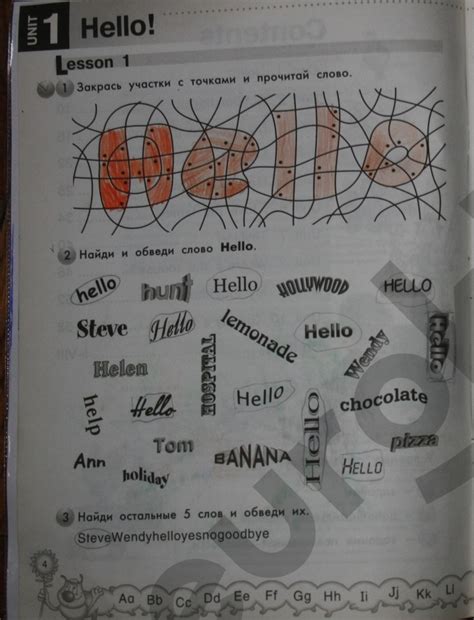 UNIT 1 Hello!
Lesson 1
1 Закрась участки с точками и прочитай слово.
Hello
2 Найди и обведи слово Hello.
hello hunt Hello HOLLYWOOD HELLO
Steve Hello lemonade Hello Wendy Hello
Helen HOSPITAL
help Hello Hello Hello chocolate
Ann Tom BANANA HELLO pizza
holiday
3 Найди остальные 5 слов и обведи их.
SteveWendyhelloyesnogoodbye
4
Aa Bb Cc Dd Ee Ff Gg Hh Ii Jj Kk Ll